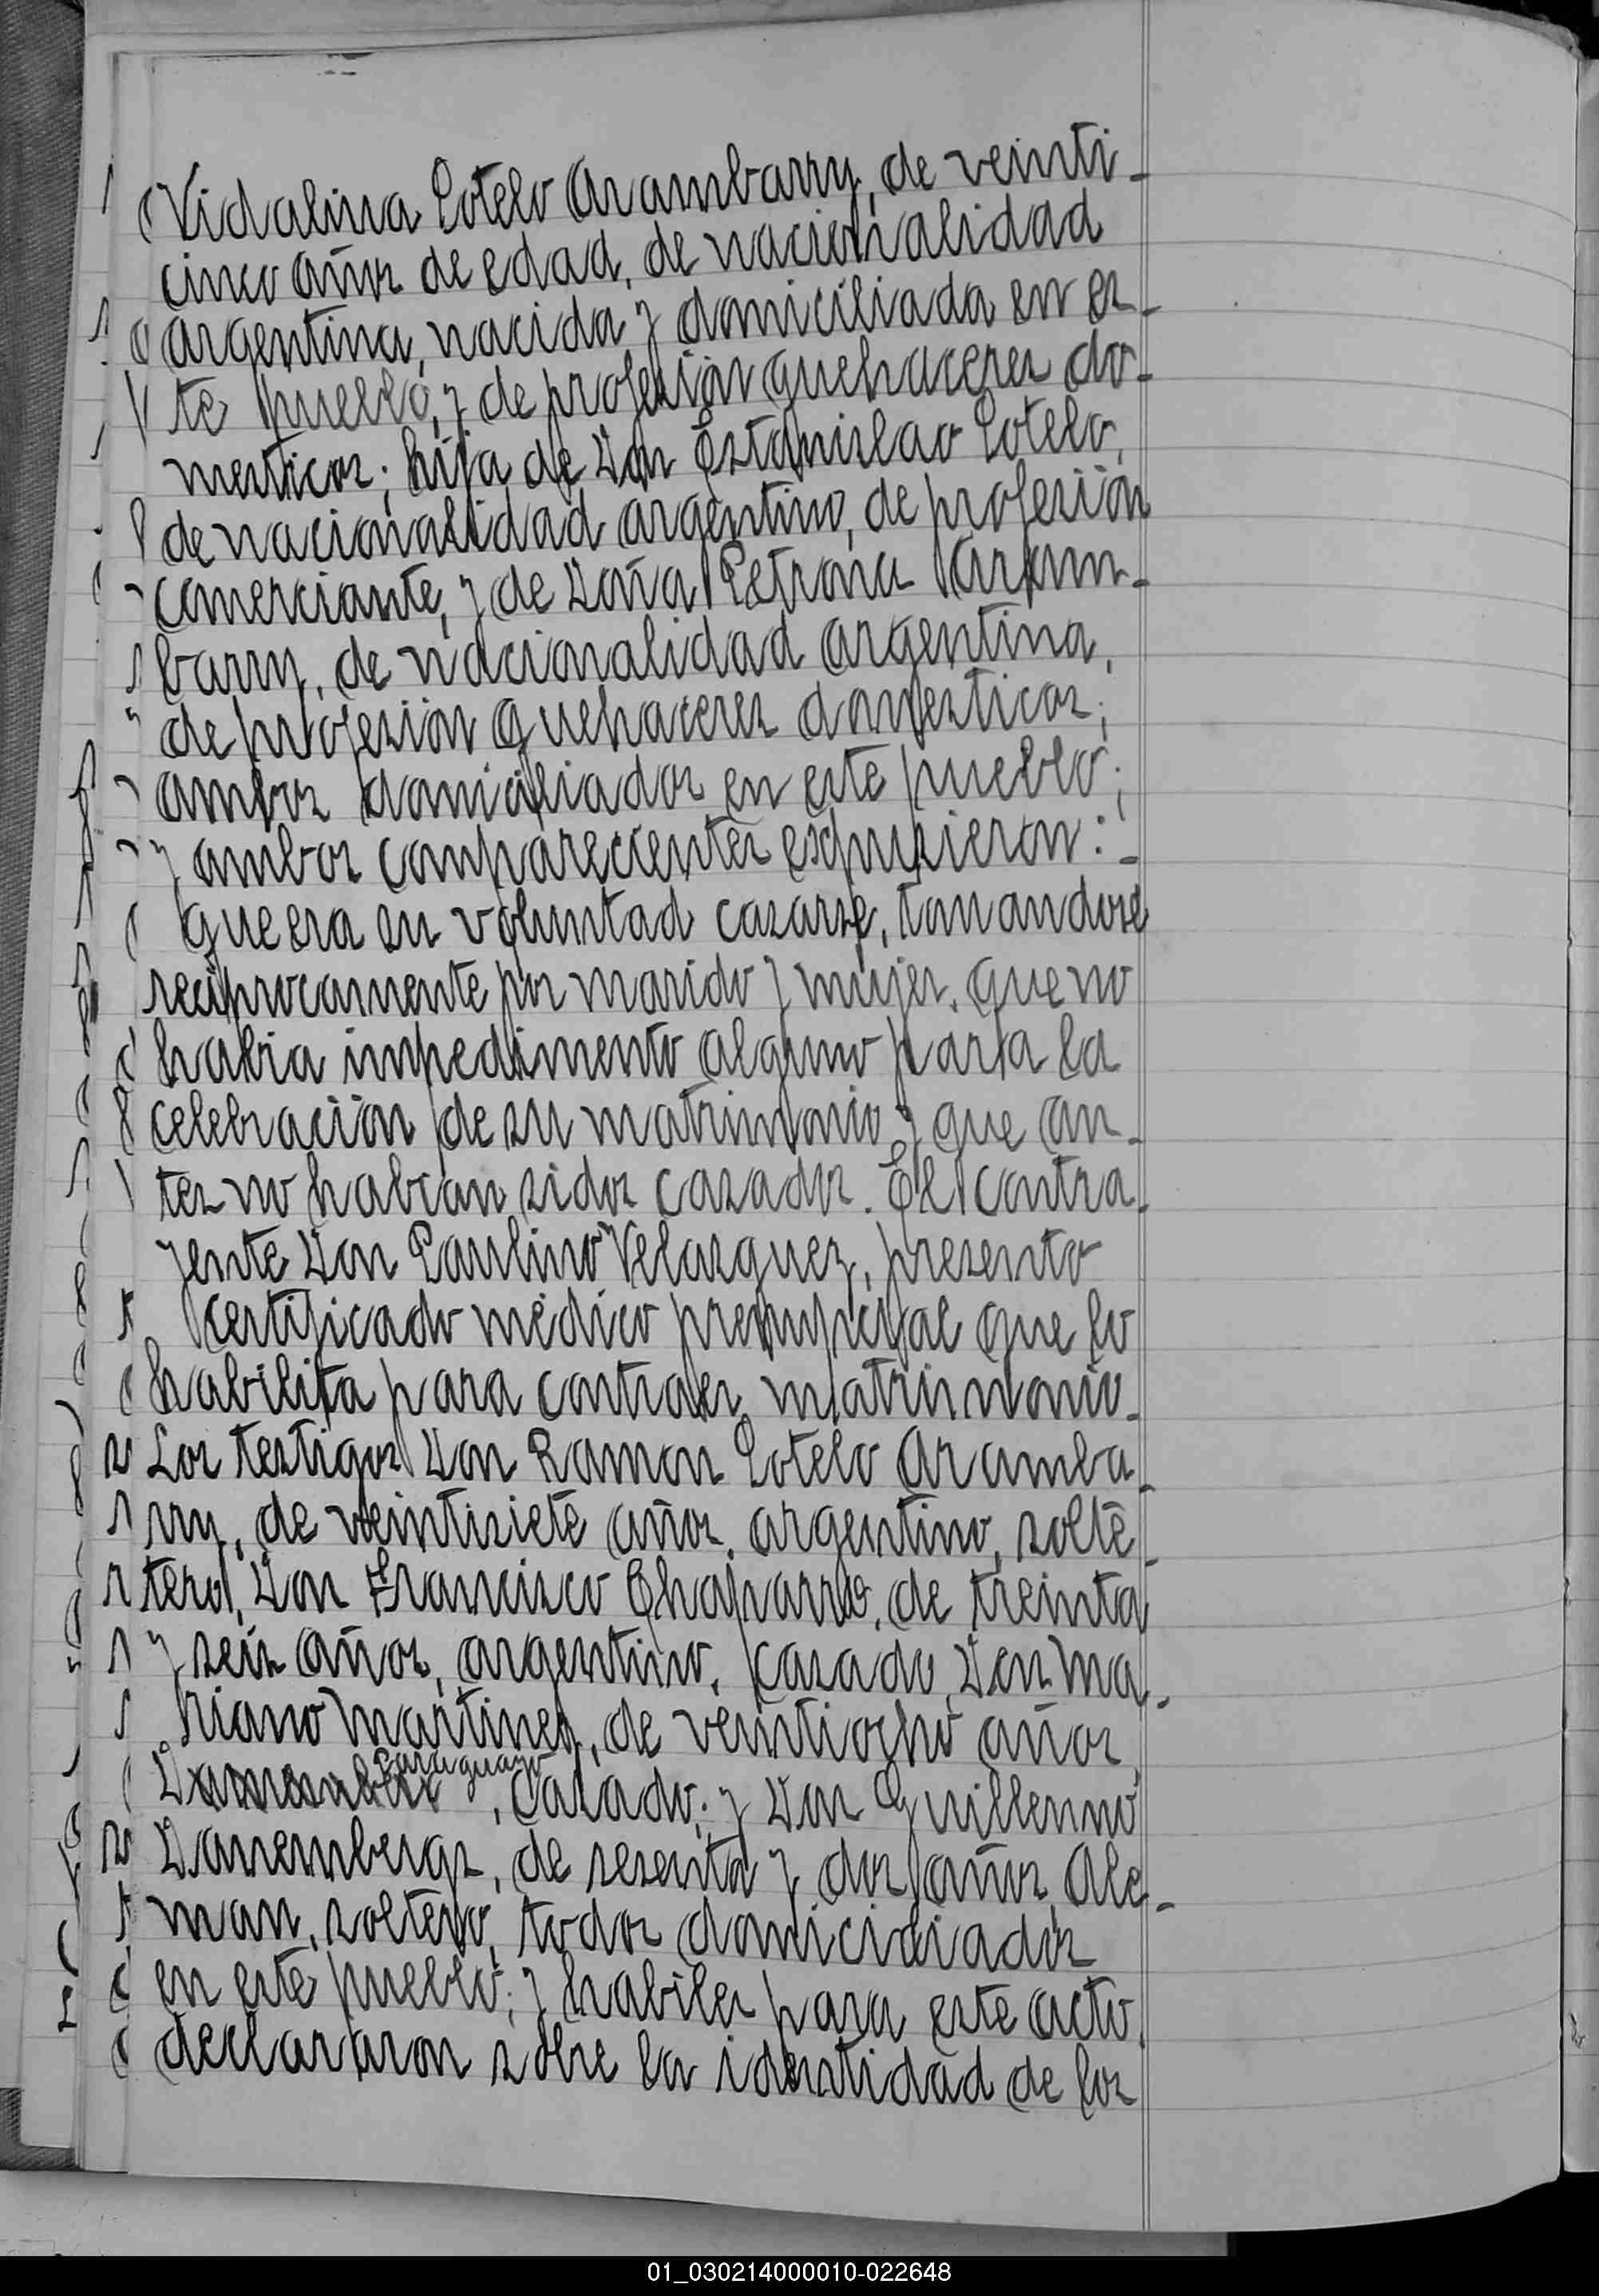 Vidalina Sotelo Arambarry, de veinti-
cinco años de edad, de nacionalidad
argentina, nacida y domiciliada en es-
te pueblo, y de profesión quehaceres do-
mesticos; hija de Don Estanislao Sotelo,
de nacionalidad argentino, de profesión
comerciante, y de Doña Petrona Aram-
barry, de nacionalidad argentina,
de profesión quehaceres domesticos;
ambos domiciliados en este pueblo;
y ambos comparecientes expusieron:-
que era su voluntad casarse, tomandose
reciprocamente por marido y mujer, que no
habia impedimento alguno para la
celebración de su matrimonio y que an-
tes no habian sidos casados. El contra-
yente Don Paulino Velasquez, presento
certificado médico prenupcial que lo
habilita para contraer matrimonio.
Los testigos Don Ramon Sotelo Aramba-
rry, de veintisiete años, argentino, solte-
tero, Don Francisco Chaparro, de treinta
y seis años, argentino, casado, Don Ma-
riano Martinez, de veintiocho años,
Paraguayo
, casado; y Don Guillermo
Danembergs, de sesenta y dos años, Ale-
man, soltero, todos domiciliados
en este pueblo; y habiles para este acto,
declararon sobre la identidad de los
01_030214000010-022648